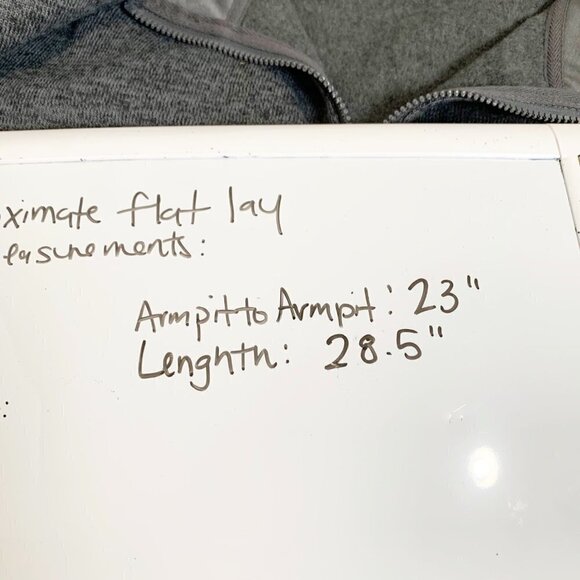 ximate flat lay
easurements:
Armpit to Armpit: 23"
Lenghth: 28.5"
: